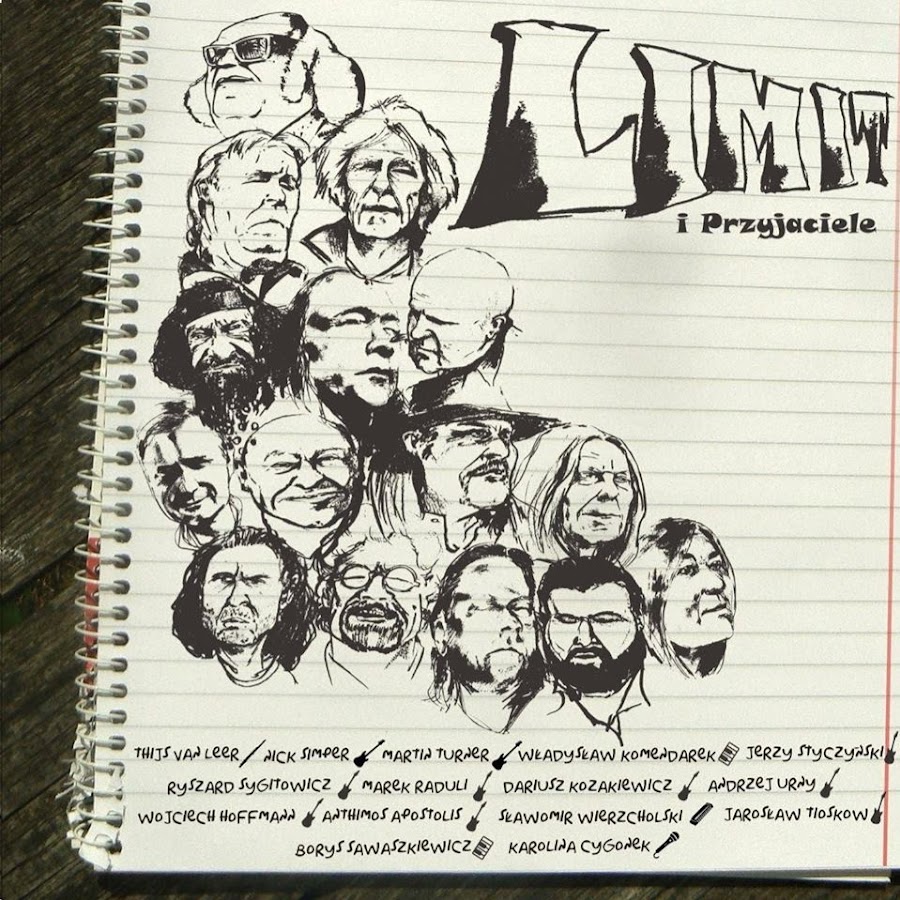 LIMIT
i Przyjaciele
THIJS VAN LEER NICK SIMPER MARTIN TURNER WŁADYSŁAW KOMENDAREK JERZY STYCZYŃSKI
RYSZARD SYGITOWICZ MAREK RADULI DARIUSZ KOZAKIEWICZ ANDRZEJ URNY
WOJCIECH HOFFMANN ANTHIMOS APOSTOLIS SŁAWOMIR WIERZCHOLSKI JAROSŁAW TIOSKOW
BORYS SAWASZKIEWICZ KAROLINA CYGONEK